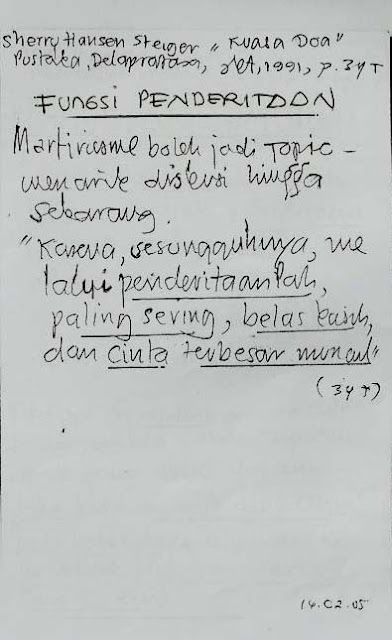 Sherry Hansen Steiger "Kuasa Doa"
Pustaka, Delapratasa, 1991, p. 347
FUNGSI PENDERITAAN
Martirisme boleh jadi Topic
menarik diskusi hingga
sekarang.
"Karena, sesungguhnya, me
lalui penderitaanlah,
paling sering, belas kasih,
dan cinta terbesar muncul"
(347)
14.02.05